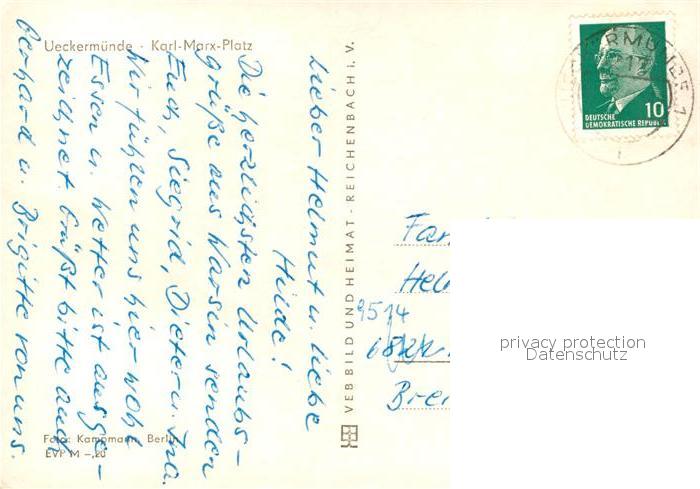 Ueckermünde · Karl-Marx-Platz
Lieber Helmut u. liebe
Heide!
Die herzlichsten Urlaubs-
grüße aus Warsin senden
Euch, Siegrid, Dieter u. Ina.
Wir fühlen uns hier wohl
Essen u. Wetter ist ausge-
zeichnet. Grüßt bitte auch
Gerhard u. Brigitte von uns.
Foto: Kampmann, Berlin
EVP M -,20
VEB BILD UND HEIMAT · REICHENBACH I. V.
10
DEUTSCHE
DEMOKRATISCHE REPUBLIK
Fam
Hel
9514
Bre
privacy protection
Datenschutz